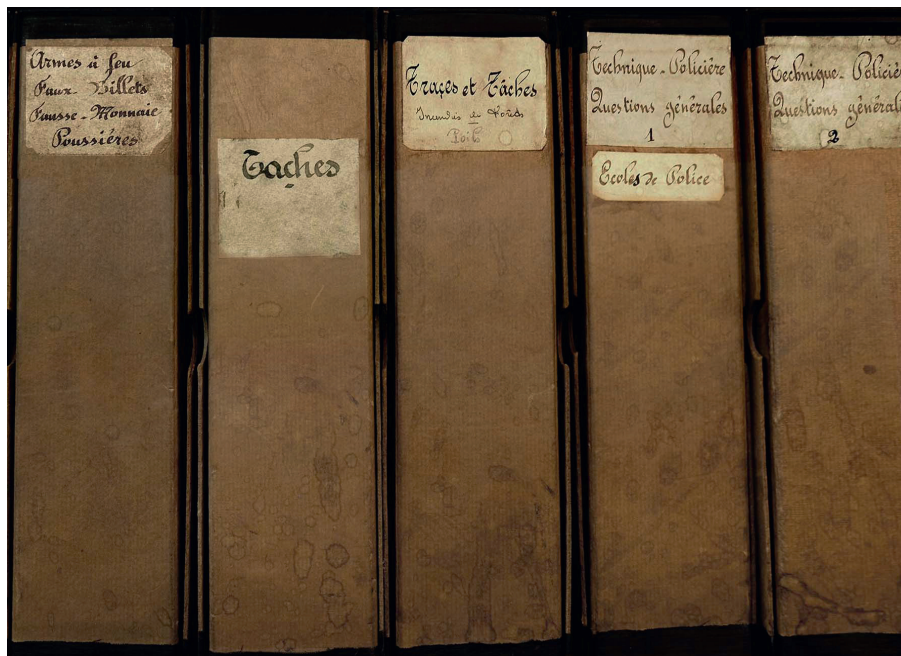 Armes à feu
Faux-Billets
Fausse-Monnaie
Poussières
Taches
Traces et Tâches
Poils
Technique-Policière
Questions générales
1
Ecoles de Police
Technique-Policiè
Questions général
2